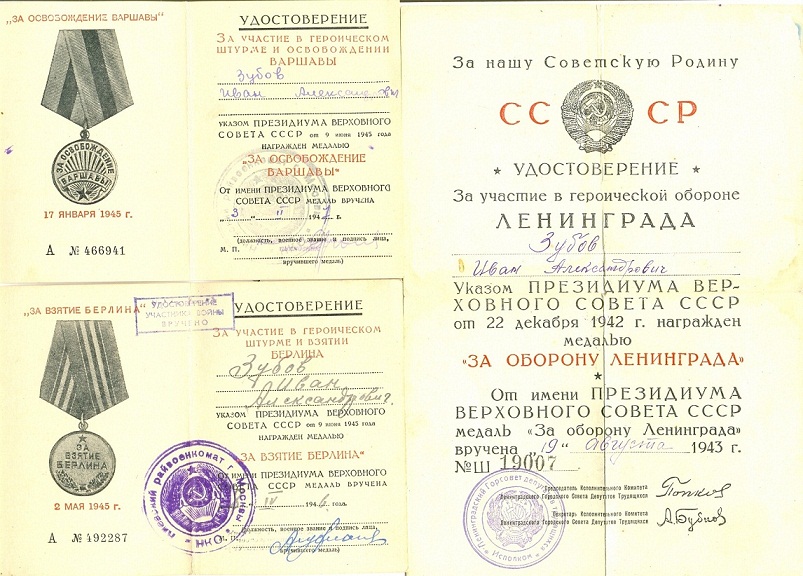 „ЗА ОСВОБОЖДЕНИЕ ВАРШАВЫ"
ЗА ОСВОБОЖДЕНИЕ
ВАРШАВЫ
17 ЯНВАРЯ 1945 г.
А № 466941
УДОСТОВЕРЕНИЕ
ЗА УЧАСТИЕ В ГЕРОИЧЕСКОМ
ШТУРМЕ И ОСВОБОЖДЕНИИ
ВАРШАВЫ
Зубов
Иван
УКАЗОМ ПРЕЗИДИУМА ВЕРХОВНОГО
СОВЕТА СССР от 9 июня 1945 года
НАГРАЖДЕН МЕДАЛЬЮ
"ЗА ОСВОБОЖДЕНИЕ
ВАРШАВЫ"
От имени ПРЕЗИДИУМА ВЕРХОВНОГО
СОВЕТА СССР МЕДАЛЬ ВРУЧЕНА
"3" II 194 г.
М. П.
(должность, военное звание и подпись лица,
вручившего медаль)
„ЗА ВЗЯТИЕ БЕРЛИНА"
ЗА
ВЗЯТИЕ
БЕРЛИНА
2 МАЯ 1945 г.
А № 492287
УДОСТОВЕРЕНИЕ
УЧАСТНИКА ВОЙНЫ
ВРУЧЕНО
УДОСТОВЕРЕНИЕ
ЗА УЧАСТИЕ В ГЕРОИЧЕСКОМ
ШТУРМЕ И ВЗЯТИИ
БЕРЛИНА
Зубов
Иван
Александрович
УКАЗОМ ПРЕЗИДИУМА ВЕРХОВНОГО
СОВЕТА СССР от 9 июня 1945 года
НАГРАЖДЕН МЕДАЛЬЮ
"ЗА ВЗЯТИЕ БЕРЛИНА"
От имени ПРЕЗИДИУМА ВЕРХОВНОГО
СССР МЕДАЛЬ ВРУЧЕНА
IV 194 года.
должность, военное звание и подпись лица,
вручившего медаль)
райвоенкомат г. Москвы
НКО
За нашу Советскую Родину
СС СР
★ УДОСТОВЕРЕНИЕ ★
За участие в героической обороне
ЛЕНИНГРАДА
Зубов
Иван Александрович
Указом ПРЕЗИДИУМА ВЕР-
ХОВНОГО СОВЕТА СССР
от 22 декабря 1942 г. награжден
медалью
«ЗА ОБОРОНУ ЛЕНИНГРАДА»
★
От имени ПРЕЗИДИУМА
ВЕРХОВНОГО СОВЕТА СССР
медаль «За оборону Ленинграда»
вручена "19" августа 1943 г.
№ Ш 19007
Председатель Исполнительного Комитета
Ленинградского Городского Совета Депутатов Трудящихся
Попков
Секретарь Исполнительного Комитета
Ленинградского Городского Совета Депутатов Трудящихся
А. Бубнов
Ленинградский Горсовет депутатов
Исполком